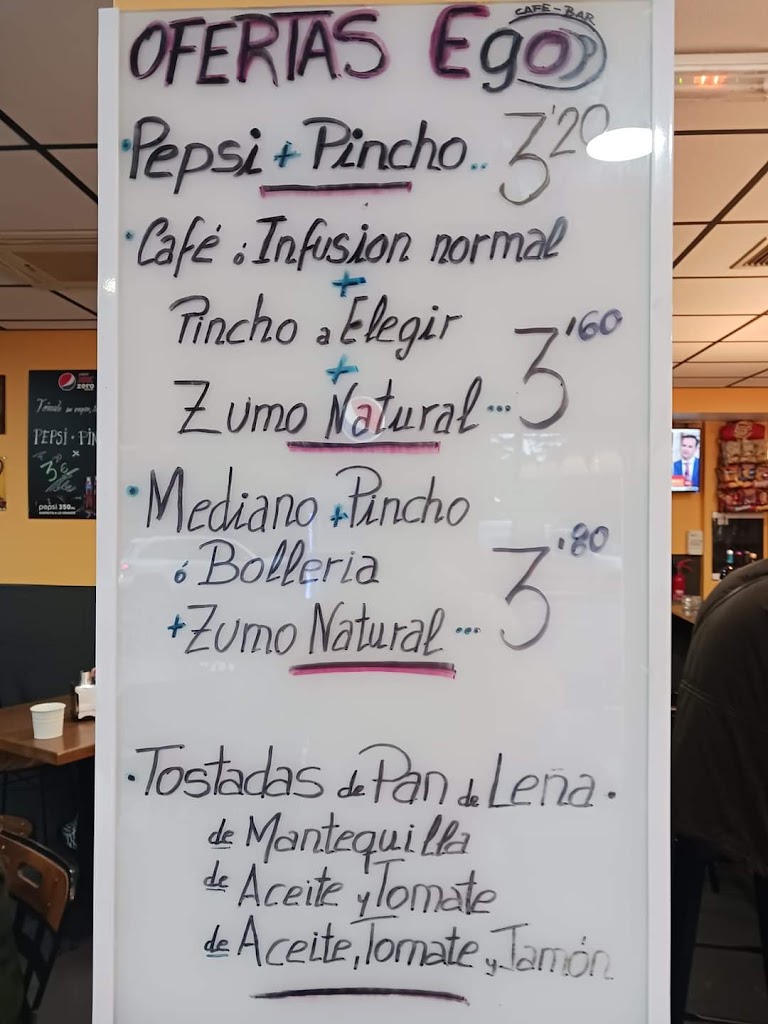 OFERTAS Ego
CAFE-BAR
• Pepsi + Pincho.. 3'20
• Café ó Infusion normal
+
Pincho a Elegir
+
Zumo Natural... 3'60
• Mediano + Pincho
ó Bolleria
+ Zumo Natural... 3'80
• Tostadas de Pan de Leña.
de Mantequilla
de Aceite y Tomate
de Aceite, Tomate y Jamón
zero
PEPSI + PIN
3
pepsi 350